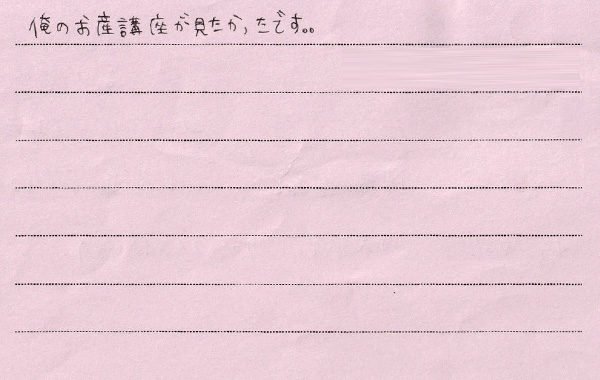 俺のお産講座が見たかったです。。